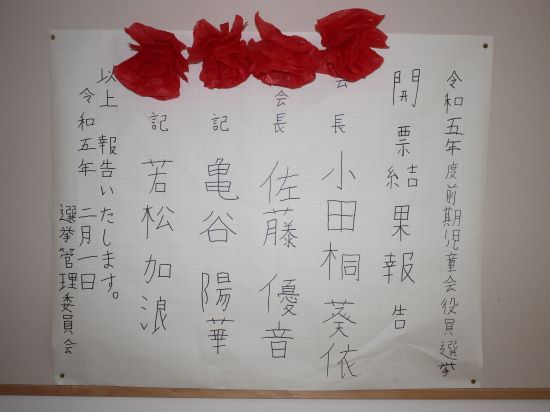 令和五年度前期児童会役員選挙
開票結果報告
会長 小田桐葵依
会長 佐藤優音
記 亀谷陽華
記 若松加浪
以上 報告いたします。
令和五年 二月一日
選挙管理委員会